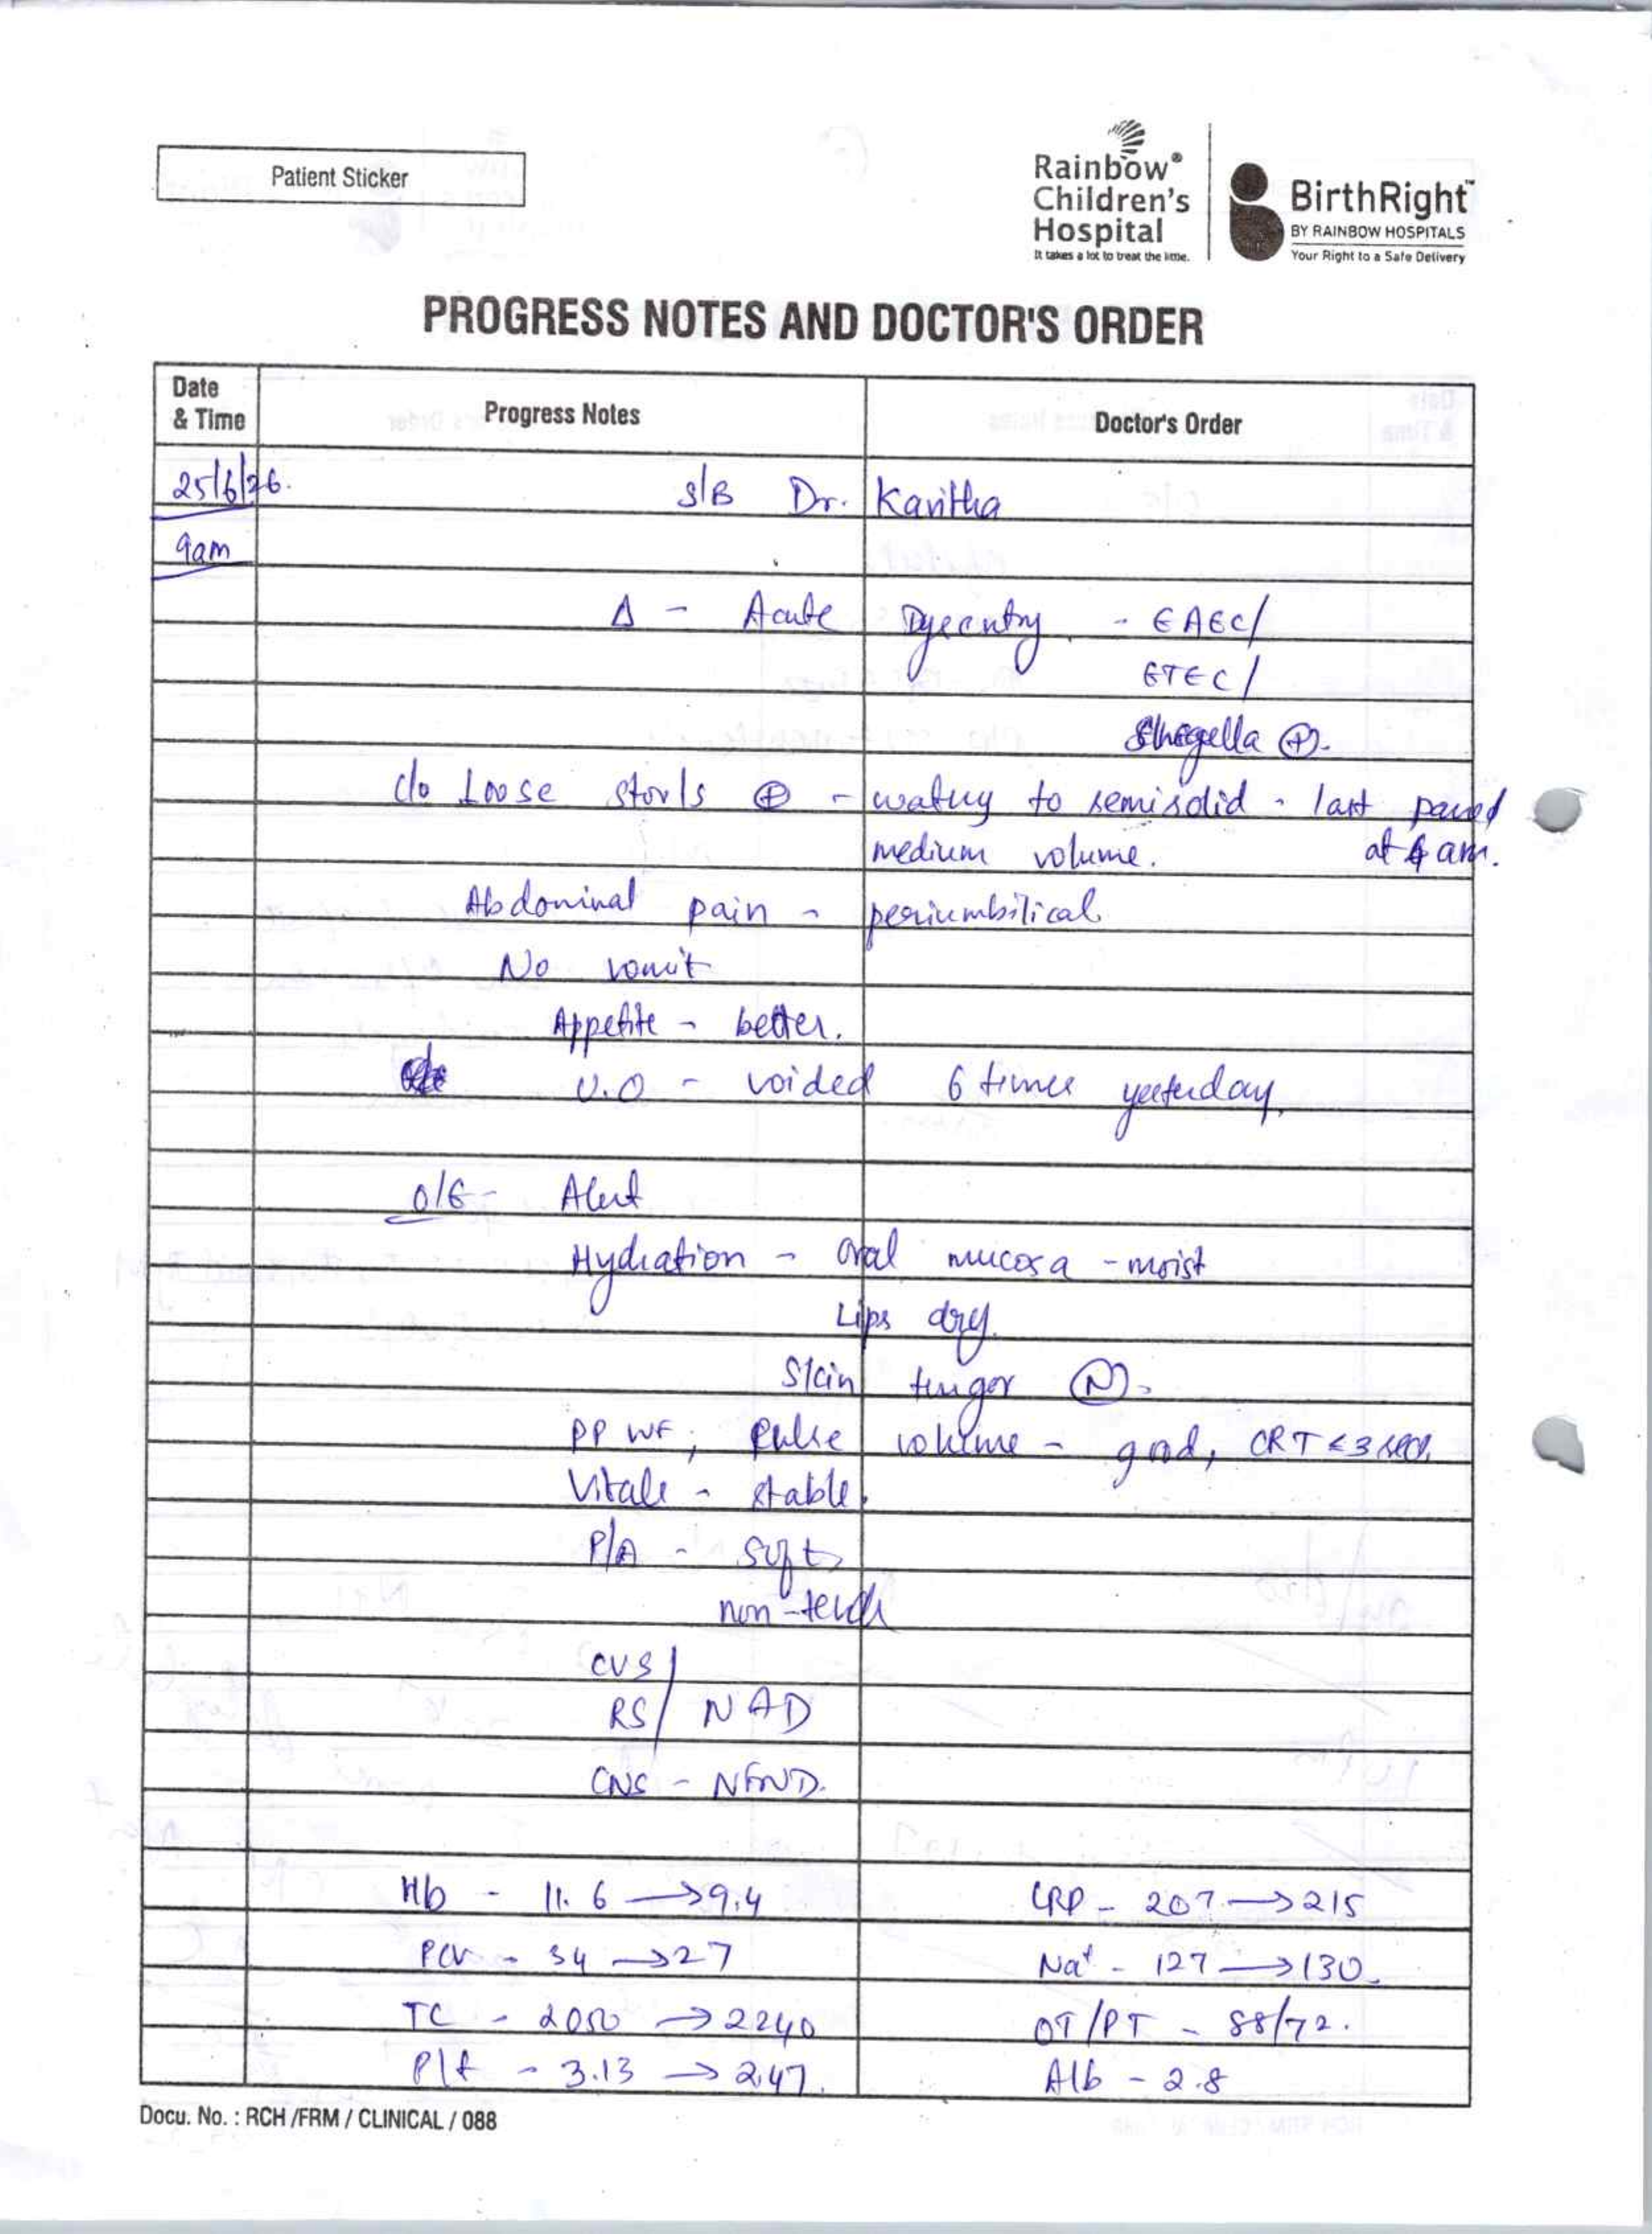 Patient Sticker
Rainbow®
Children's
Hospital
It takes a lot to treat the little.
BirthRight™
BY RAINBOW HOSPITALS
Your Right to a Safe Delivery
PROGRESS NOTES AND DOCTOR'S ORDER
Date & Time Progress Notes Doctor's Order
25/6/26. S/B Dr. Kavitha
9am
Δ - Acute Dysentry - EAEC/
ETEC/
Shegella ⊕.
c/o Loose stools ⊕ - watery to semisolid - last passed
medium volume. at 4 am.
Abdominal pain - periumbilical
No vomit
Appetite - better.
U.O - voided 6 times yesterday.
O/E - Alert
Hydration - oral mucosa - moist
Lips dry.
Skin turgor Ⓝ.
PP WF, pulse volume - good, CRT < 3 secs.
Vitals - stable.
P/A - soft,
non-tender
CVS/
RS/ NAD
CNS - NFND.
Hb - 11.6 → 9.4 CRP - 207 → 215
PCV - 34 → 27 Na⁺ - 127 → 130.
TC - 2050 → 2240 OT/PT - 88/72.
Plt - 3.13 → 2.47. Alb - 2.8
Docu. No. : RCH /FRM / CLINICAL / 088